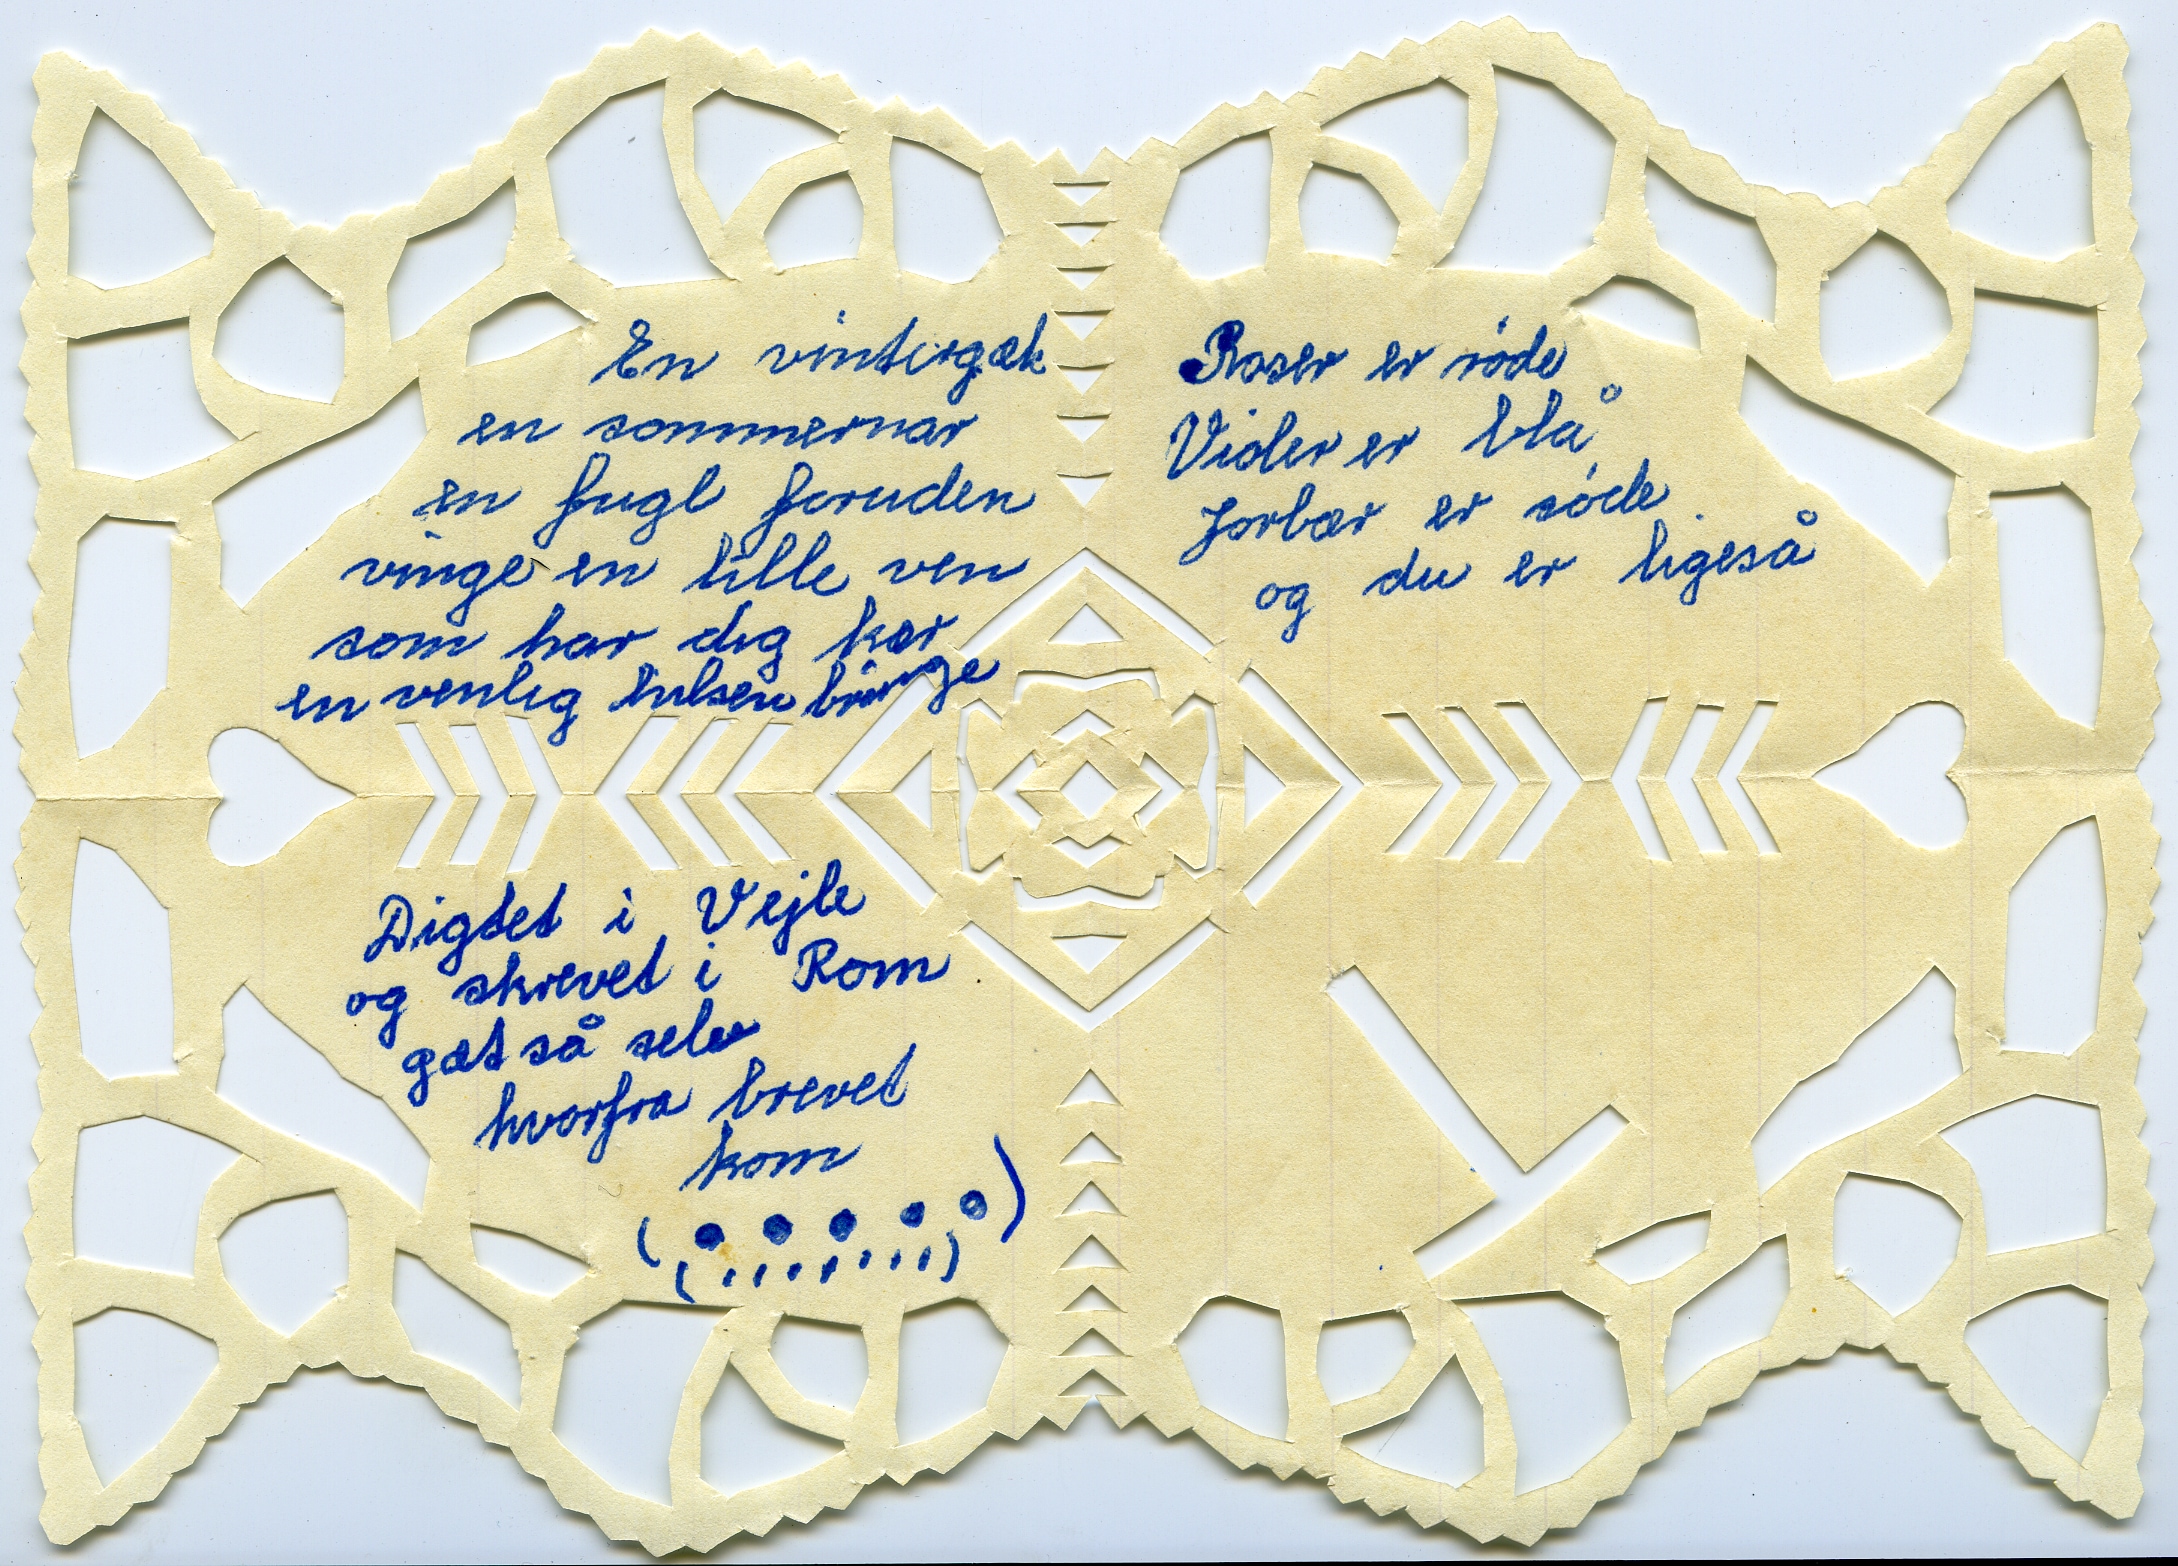 En vintergæk
en sommernar
en fugl foruden
vinge en lille ven
som har dig kær
en venlig hilsen bringe
Roser er røde
Violer er blå
Jorbær er søde
og du er ligeså
Digtet i Vejle
og skrevet i Rom
gæt så selv
hvorfra brevet
kom
(.....)
(,,,,,,,,)